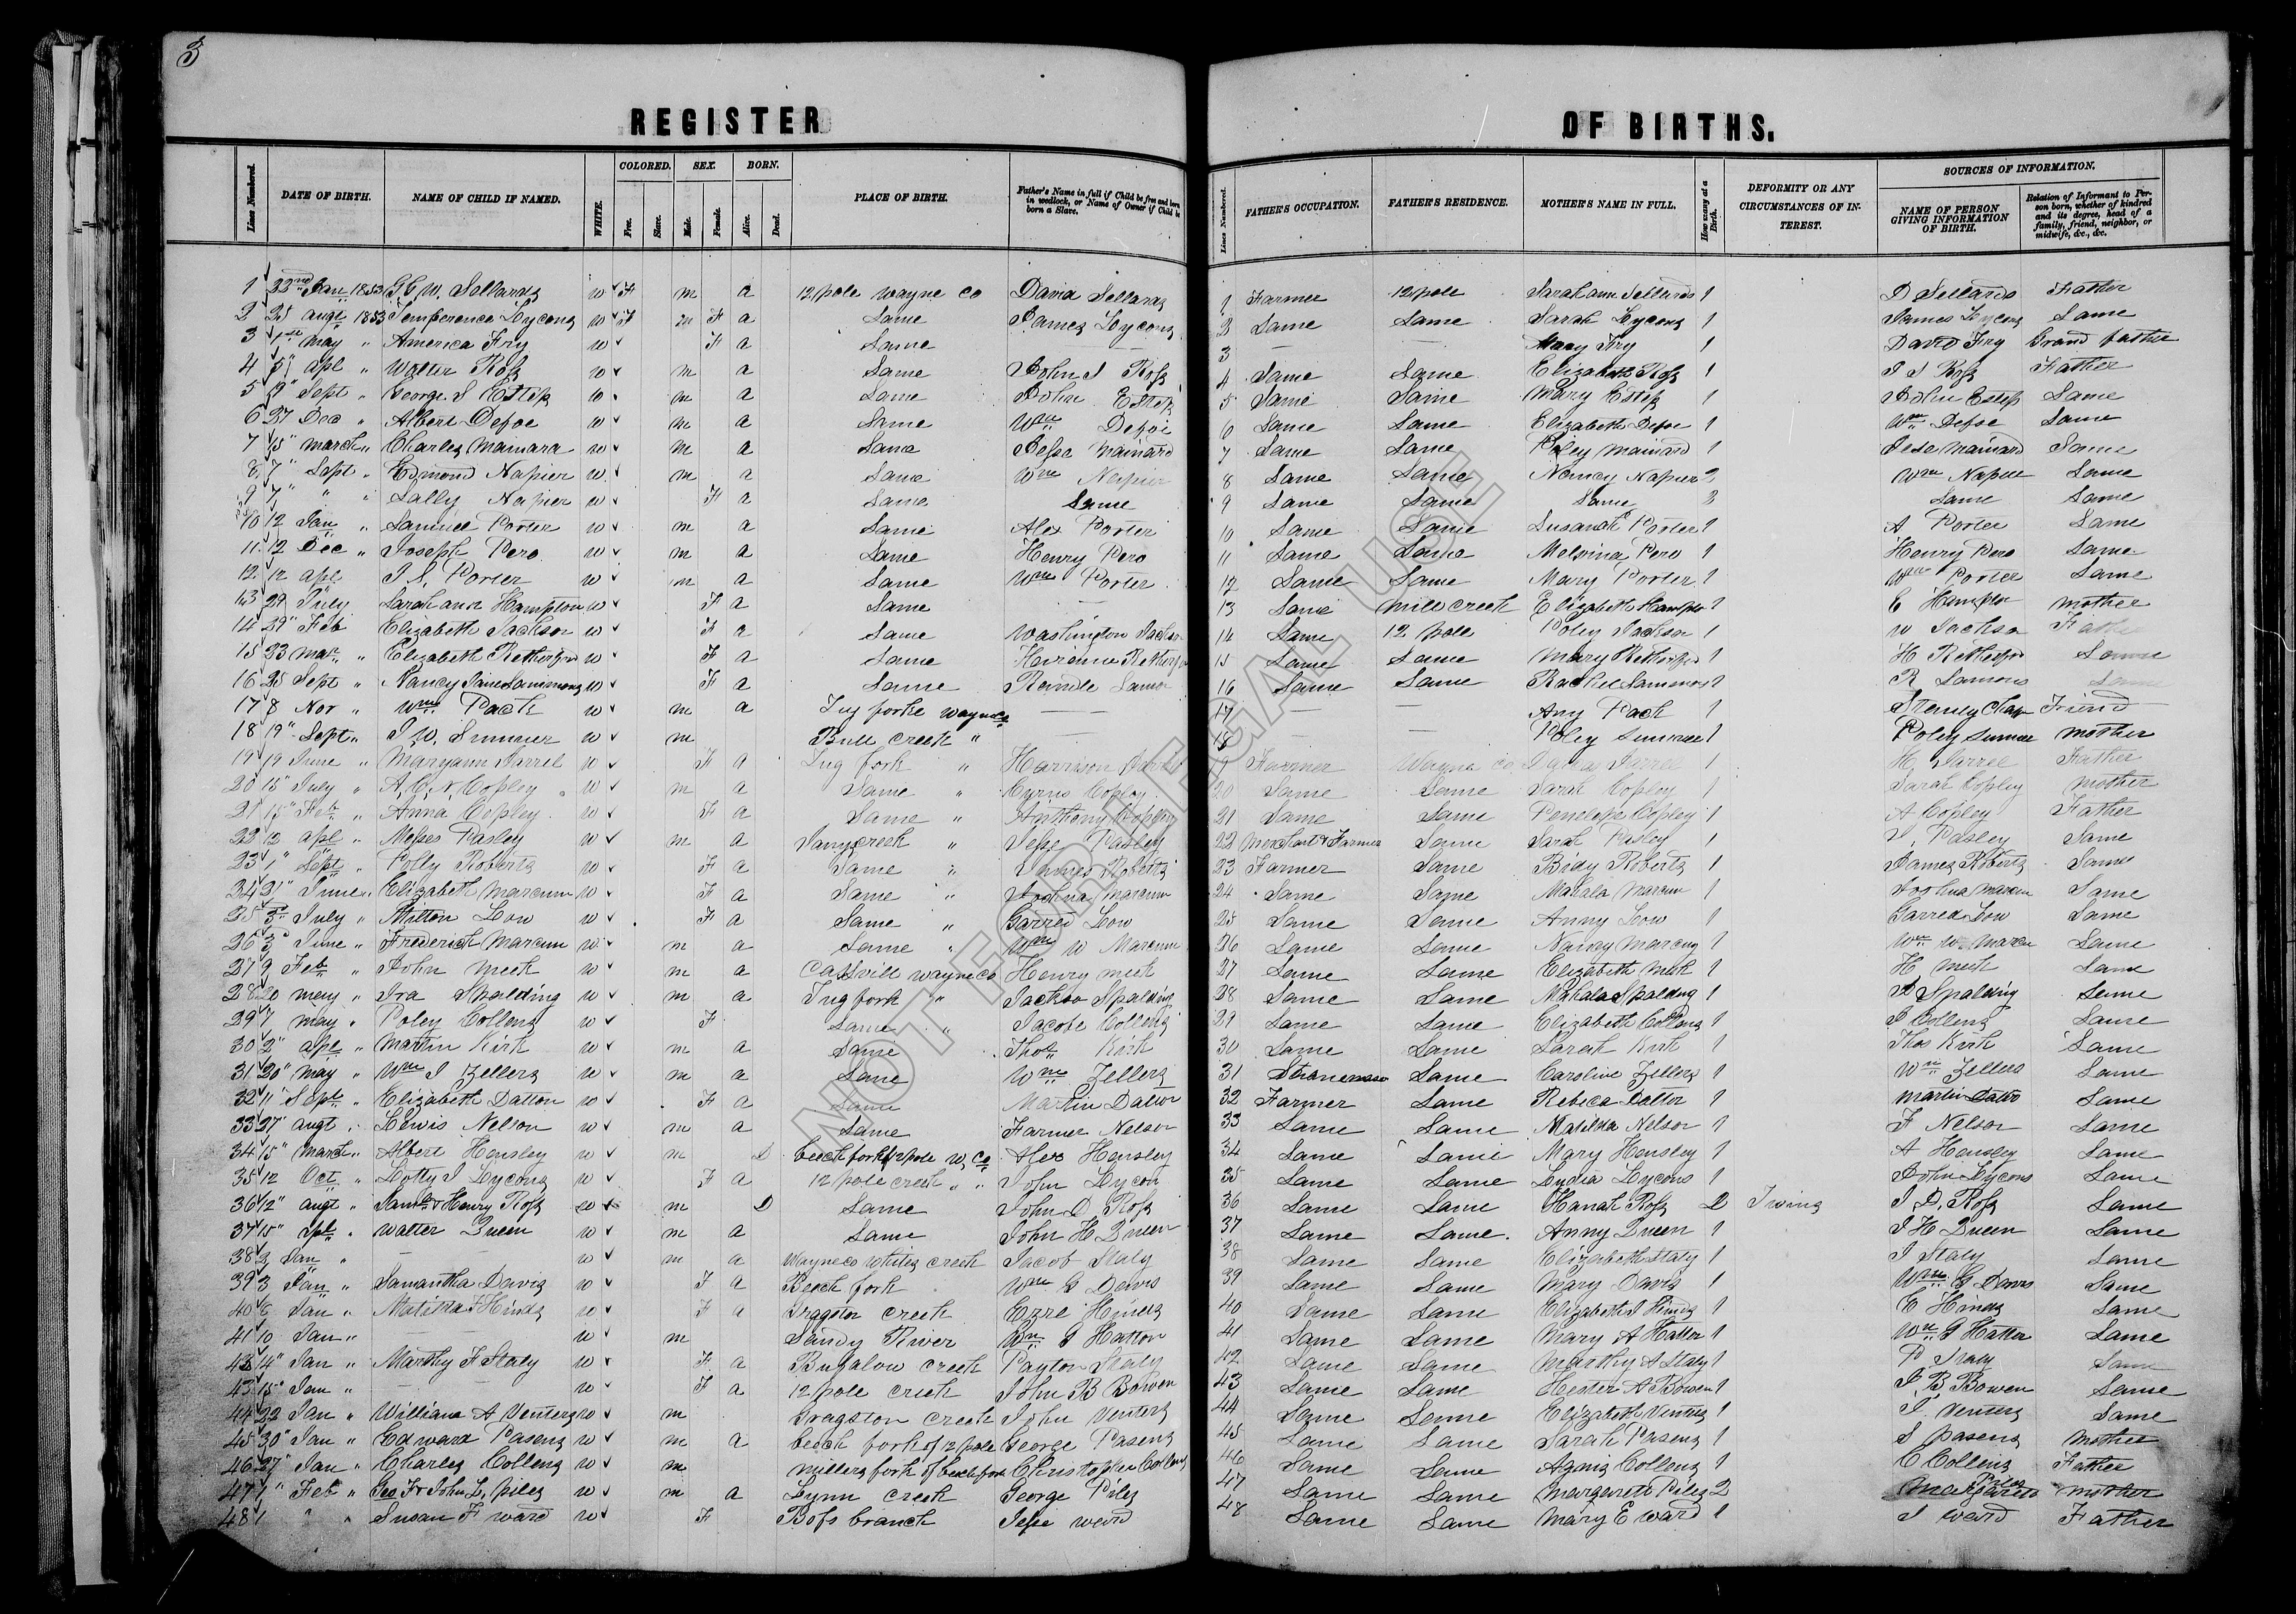 3
REGISTER OF BIRTHS.
Lines Numbered. DATE OF BIRTH. NAME OF CHILD IF NAMED. WHITE. COLORED. Free. Slave. SEX. Male. Female. BORN. Alive. Dead. PLACE OF BIRTH. Father's Name in full if Child be free and born in wedlock, or Name of Owner if Child be born a Slave. Lines Numbered. FATHER'S OCCUPATION. FATHER'S RESIDENCE. MOTHER'S NAME IN FULL. How many at a Birth. DEFORMITY OR ANY CIRCUMSTANCES OF INTEREST. SOURCES OF INFORMATION. NAME OF PERSON GIVING INFORMATION OF BIRTH. Relation of Informant to Person born, whether of kindred and its degree, head of a family, friend, neighbor, or midwife, &c., &c.
1 22nd Jan 1853 G W. Sellards w F m a 12 pole wayne co David Sellards 1 Farmer 12 pole Sarah ann Sellards 1 D Sellards Father
2 25 augt 1853 Temperence Lycons w F m F a Same James Lycons 2 Same Same Sarah Lycons 1 James Lycons Same
3 1st May " America Fry w F a Same — 3 — — Mary Fry 1 David Fry Grand father
4 5 " apl " Walter Ross w m a Same John S Ross 4 Same Same Elizabeth Ross 1 J S Ross Father
5 9 " Sept " George S Estep w m a Same John Estep 5 Same Same Mary Estep 1 John Estep Same
6 27 Dec " Albert Defoe w m a Same Wm Defoe 6 Same Same Elizabeth Defoe 1 Wm Defoe Same
7 15 " march " Charles Mainard w m a Same Jesse Mainard 7 Same Same Poley Mainard 1 Jesse Mainard Same
8 7 " Sept " Edmond Napier w m a Same Wm Napier 8 Same Same Nancy Napier 2 Wm Napier Same
9 7 " " " Sally Napier w F a Same Same 9 Same Same Same 2 Same Same
10 12 Jan " Samuel Porter w m a Same Alex Porter 10 Same Same Susanah Porter 1 A Porter Same
11 12 Dec " Joseph Pero w m a Same Henry Pero 11 Same Same Melvina Pero 1 Henry Pero Same
12 12 apl Porter w m a Same Wm Porter 12 Same Same Mary Porter 1 Wm Porter Same
13 29 July Sarah ann Hampton w F a Same — 13 Same mill creek Elizabeth Hampton 1 E Hampton mother
14 29 " Feb Elizabeth Jackson w F a Same Washington Jackson 14 Same 12 pole Poley Jackson 1 W Jackson Father
15 23 mar " Elizabeth w F a Same 15 Same Same Mary 1 H Same
16 25 Sept " Nancy Jane Sammons w F a Same 16 Same Same Rachel Sammons 1 R Samons Same
17 8 Nov " Wm Pack w m a Tug forke wayne co — 17 — — Any Pack 1 Friend
18 19 " Sept " J W. Summer w m Bull creek " — 18 — — Poley Summer 1 Poley Sumer mother
19 19 June " Maryann Jarrel w F a Tug fork " Harrison 19 Farmer Wayne co Jarrel 1 H. Jarrel Father
20 15 " July " A. C. N. Copley w m a Same " Cyrus Copley 20 Same Same Sarah Copley 1 Sarah Copley mother
21 15 " Feb " Anna Copley w F a Same " Anthony Copley 21 Same Same Penelope Copley 1 A Copley Father
22 12 apl " Moses Pasley w m a creek " Jesse Pasley 22 Merchant & Farmer Same Sarah Pasley 1 J. Pasley Same
23 1 " Sept " Polly Roberts w F a Same " James Roberts 23 Farmer Same Bidy Roberts 1 James Roberts Same
24 21 " June " Elizabeth Marcum w F a Same " Joshua Marcum 24 Same Same Mahala Marcum 1 Joshua Marcum Same
25 3rd July " Milton Low w F a Same " Garred Low 25 Same Same Anny Low 1 Garred Low Same
26 3 " June " Frederick Marcum w m a Same " Wm W Marcum 26 Same Same Nancy Marcum 1 Wm W Marcum Same
27 9 Feb " John Meek w m a Cassvill wayne co Henry Meek 27 Same Same Elizabeth Meek 1 H Meek Same
28 20 may " Ira Spalding w m a Tug fork " Jackson Spalding 28 Same Same Mahala Spalding 1 J Spalding Same
29 7 may " Poley Collens w F Same " Jacob Collens 29 Same Same Elizabeth Collens 1 J Collens Same
30 2 " apl " Martin Kirk w m a Same Thos Kirk 30 Same Same Sarah Kirk 1 Thos Kirk Same
31 20 " may " Wm J Zellers w m a Same Wm Zellers 31 Same Caroline Zellers 1 Wm Zellers Same
32 11 " Sept " Elizabeth Datton w F a Same Martin Datton 32 Farmer Same Rebeca Datton 1 Martin Datton Same
33 27 " augt " Lewis Nelson w m a Same Farmer Nelson 33 Same Same Matilda Nelson 1 F Nelson Same
34 15 " march " Albert Hensley w m D beech fork of 12 pole W. Co Alex Hensley 34 Same Same Mary Hensley 1 A Hensley Same
35 12 Oct " Lotty J Lycons w F a 12 pole creek " " John Lycon 35 Same Same Lydia Lycons 1 John Lycons Same
36 12 " augt " Saml & Henry Ross w m D Same John D. Ross 36 Same Same Hanah Ross D Twins J D. Ross Same
37 15 " Spt " Walter Queen w m a Same John H Queen 37 Same Same Anny Queen 1 J H Queen Same
38 2 Jan " — — w m a Wayne co whites creek Jacob Staly 38 Same Same Elizabeth Staly 1 J Staly Same
39 3 Jan " Samantha Davis w F a Beech fork Wm G Davis 39 Same Same Mary Davis 1 Wm G Davis Same
40 6 Jan " Matilda F Hinds w F a Gragston creek Ezre Hinds 40 Same Same Elizabeth J Hinds 1 E Hinds Same
41 10 Jan " — — w m Sandy River Wm G Hatton 41 Same Same Mary A Hatten 1 Wm G Hatten Same
42 14 " Jan " Marthy F Staly w F a Bufalow creek Payton Staly 42 Same Same Marthy A Staly 1 P Staly Same
43 15 " Jan " — w F a 12 pole creek John B Bowen 43 Same Same Hester A Bowen 1 J. B. Bowen Same
44 22 Jan " William A Venters w m Gragston creek John Venters 44 Same Same Elizabeth Venters 1 J Venters Same
45 30 " Jan " Edward Pasens w m a beech fork of 12 pole George Pasens 45 Same Same Sarah Pasens 1 S Pasens mother
46 27 " Jan " Charles Collens w m millers fork of beech fork Christopher Collens 46 Same Same Collens 1 C Collens Father
47 1 " Feb " Geo F & John L. Piles w m a Lynn creek George Piles 47 Same Same Margarett Piles 2 Margarett Piles mother
48 1 " " Susan F ward w F Boss branch Jesse ward 48 Same Same Mary E ward 1 J ward Father
NOT FOR LEGAL USE